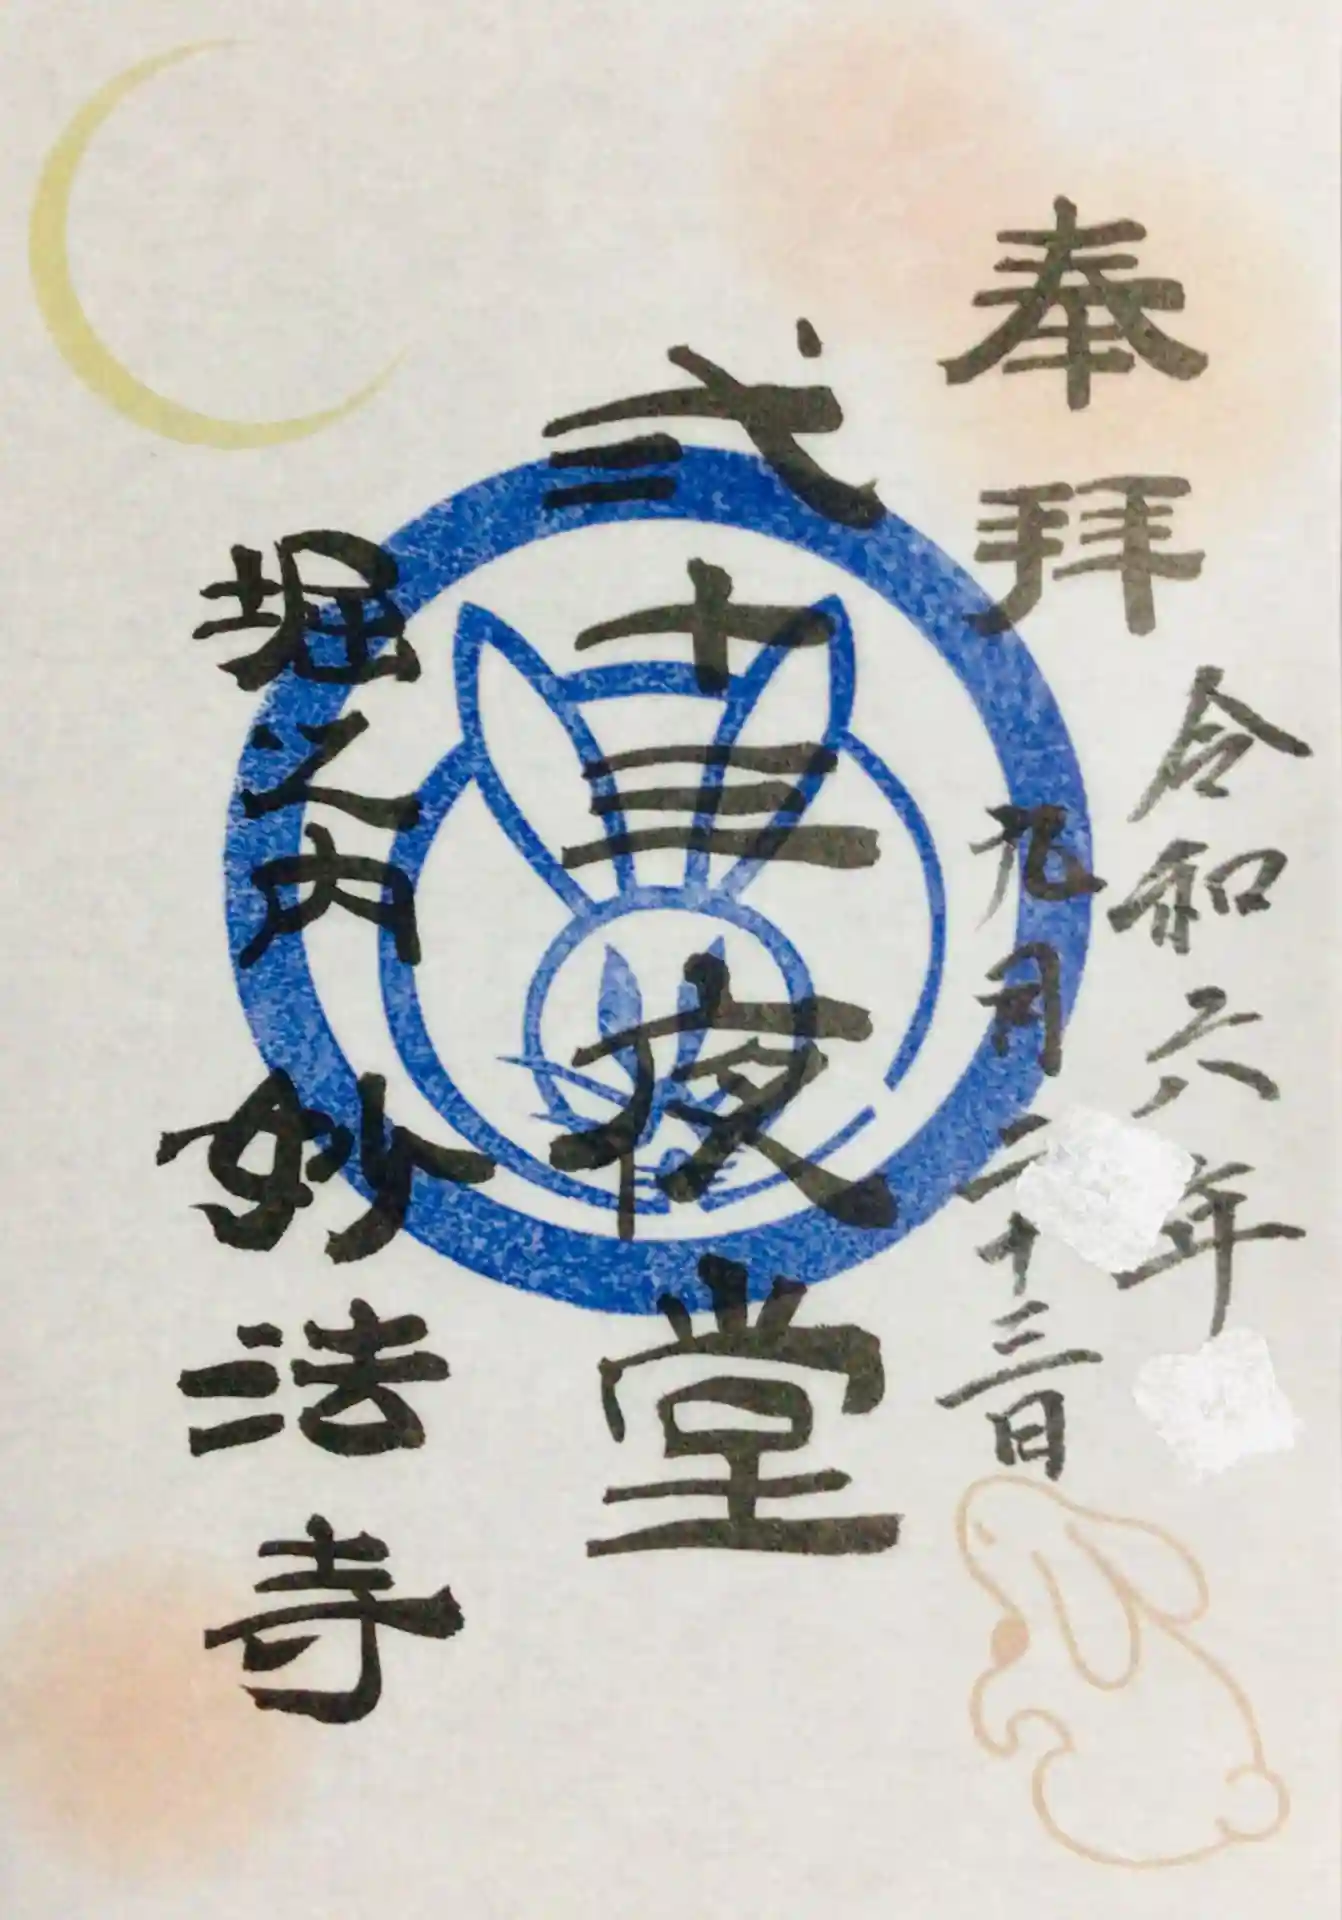 奉拝
令和六年
九月二十三日
弐十三夜堂
堀之内妙法寺